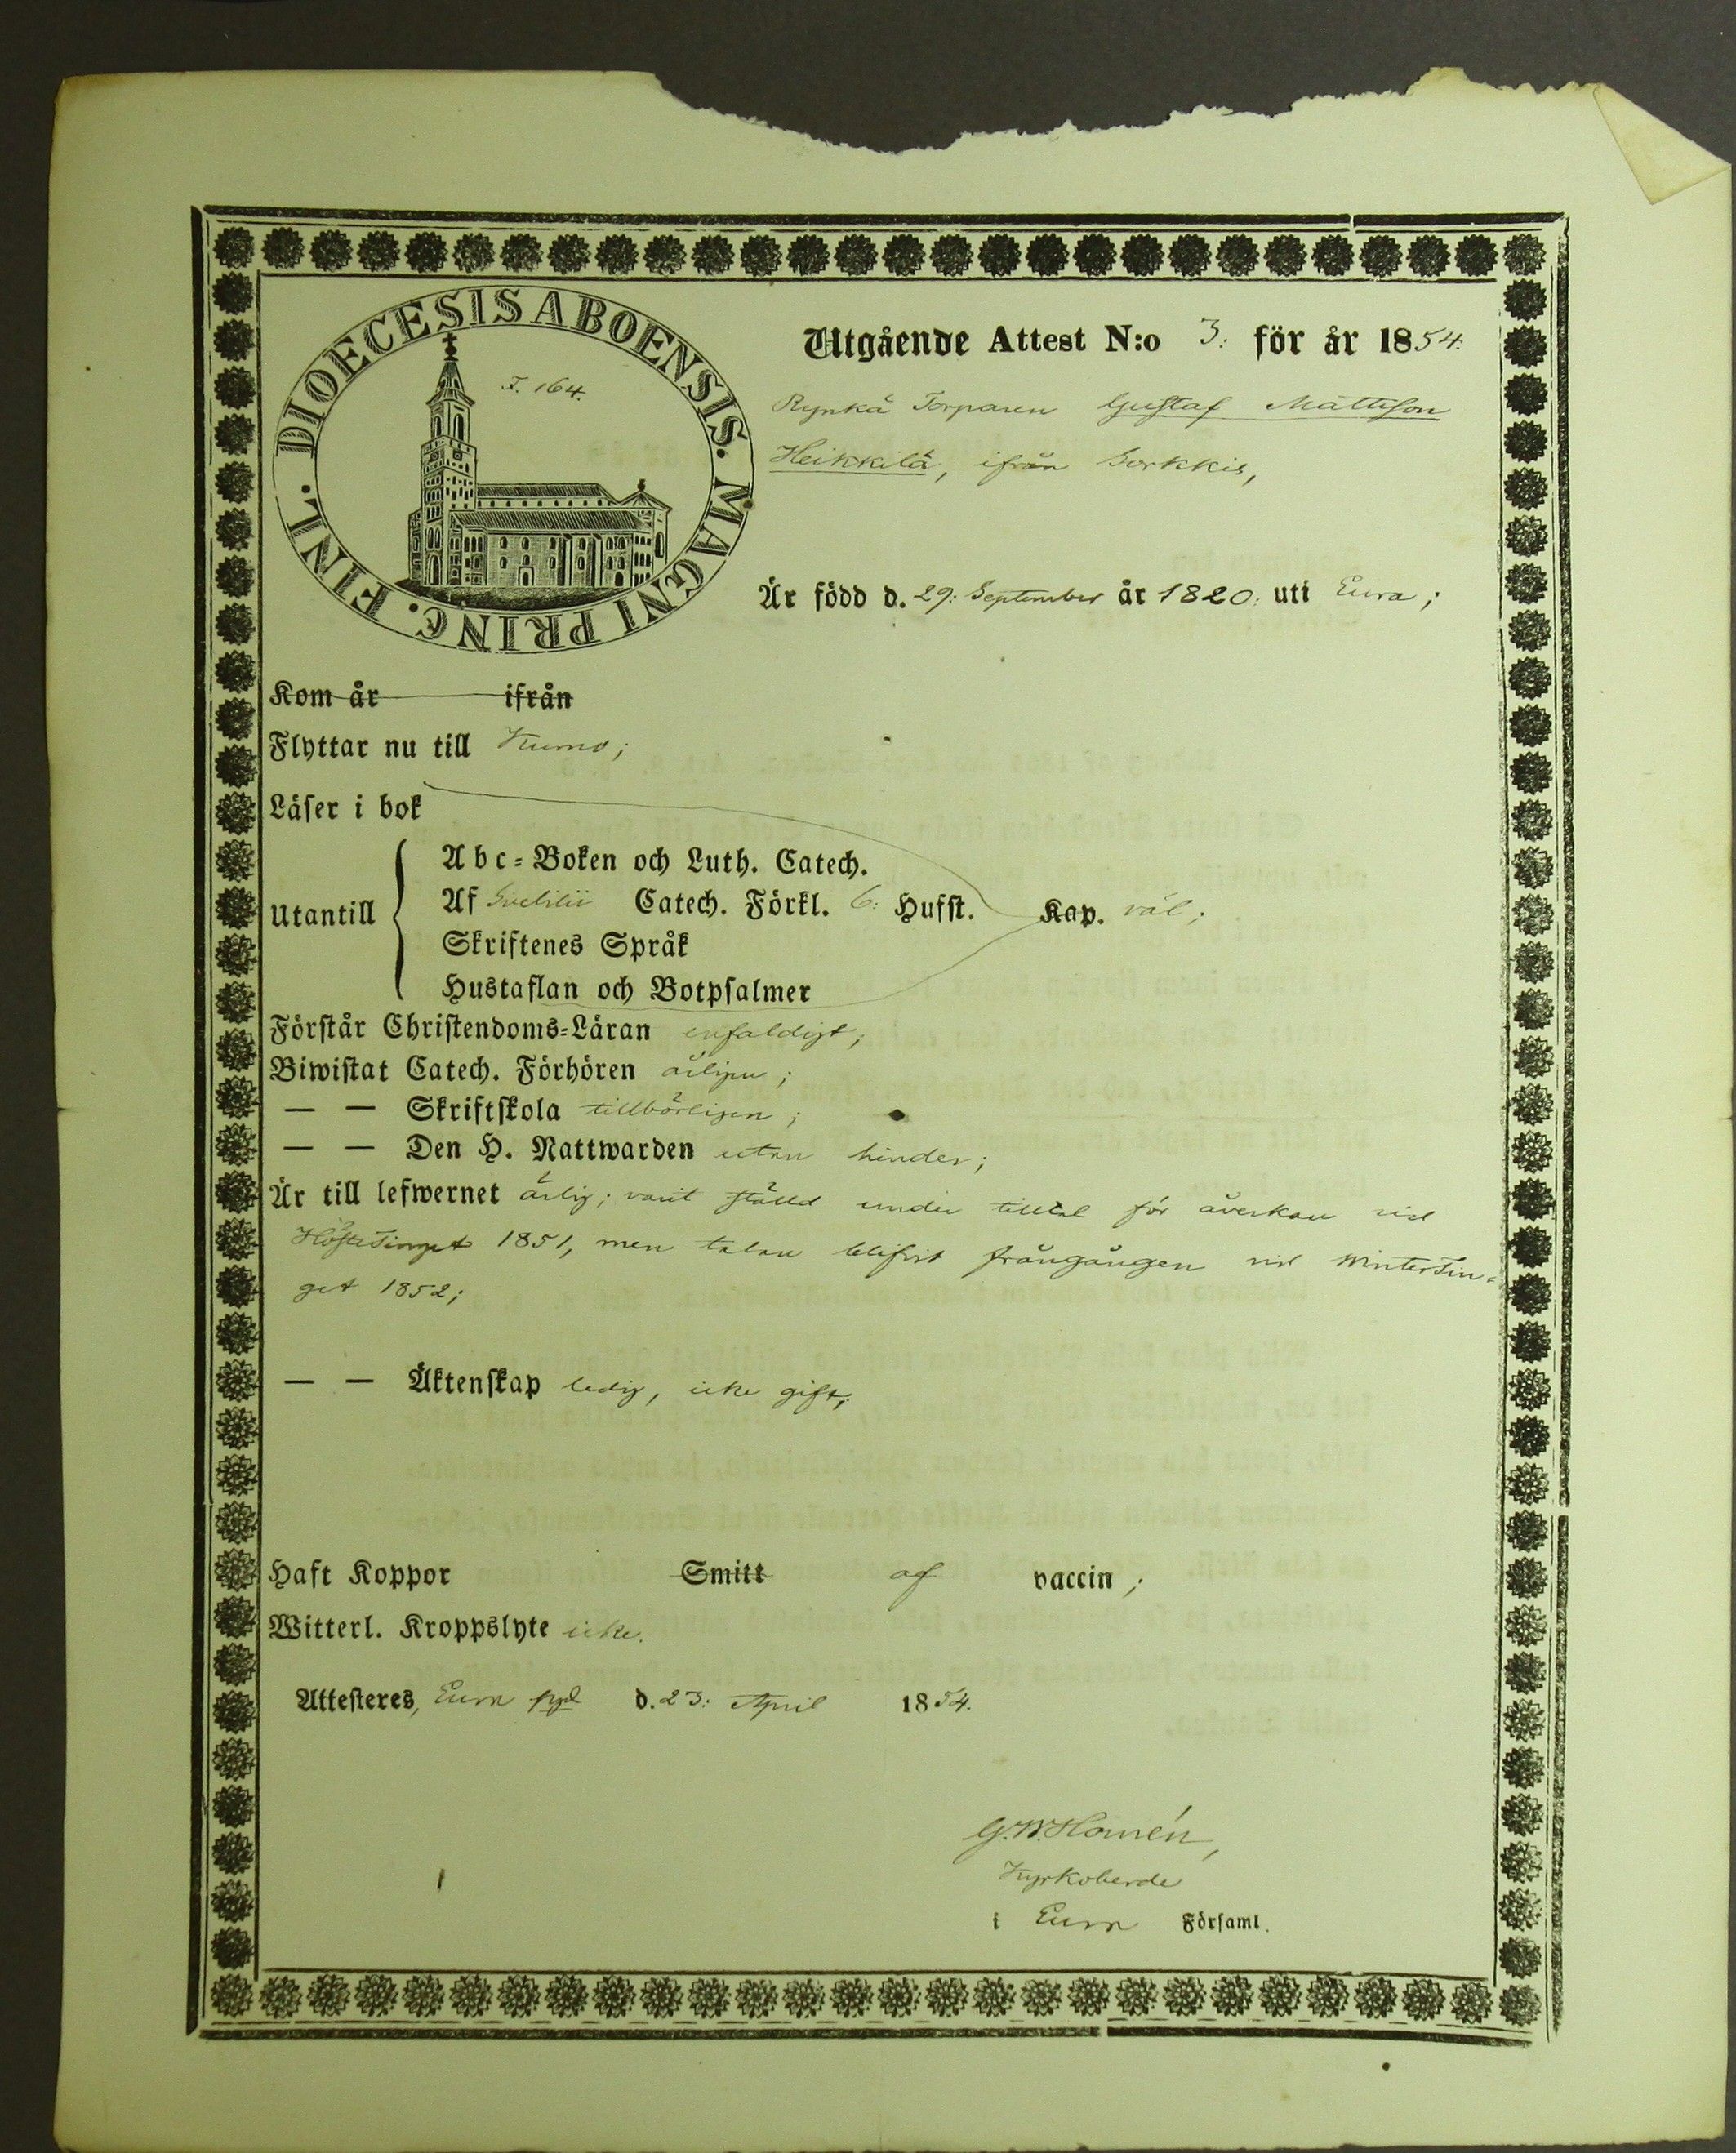 DIOECESIS ABOENSIS. MAGNI PRINC. FINL.
F. 164.
Utgående Attest N:o 3: för år 1854.
Rynkä Torparen Gustaf Mattsson
Heikkilä, ifrån Sorkkis,
Är född d. 29: September år 1820: uti Eura;
Kom år ifrån
Flyttar nu till Kumo;
Läser i bok
Utantill
Abc-Boken och Luth. Catech.
Af Svebilii Catech. Förkl. 6: Hufst. Kap. väl;
Skriftenes Språk
Hustaflan och Botpsalmer
Förstår Christendoms-Läran enfaldigt;
Biwistat Catech. Förhören årligen;
— — Skriftskola tillbörligen;
— — Den H. Nattwarden utan hinder;
Är till lefwernet ärlig; varit ställd under tilltal för åverkan vid
HösteTinget 1851, men talan blifvit frångången vid WinterTin-
get 1852;
— — Äktenskap ledig, icke gift;
Haft Koppor Smitt af vaccin;
Witterl. Kroppslyte icke.
Attesteres, Eura d. 23: April 1854.
Kyrkoherde
i Eura Församl.